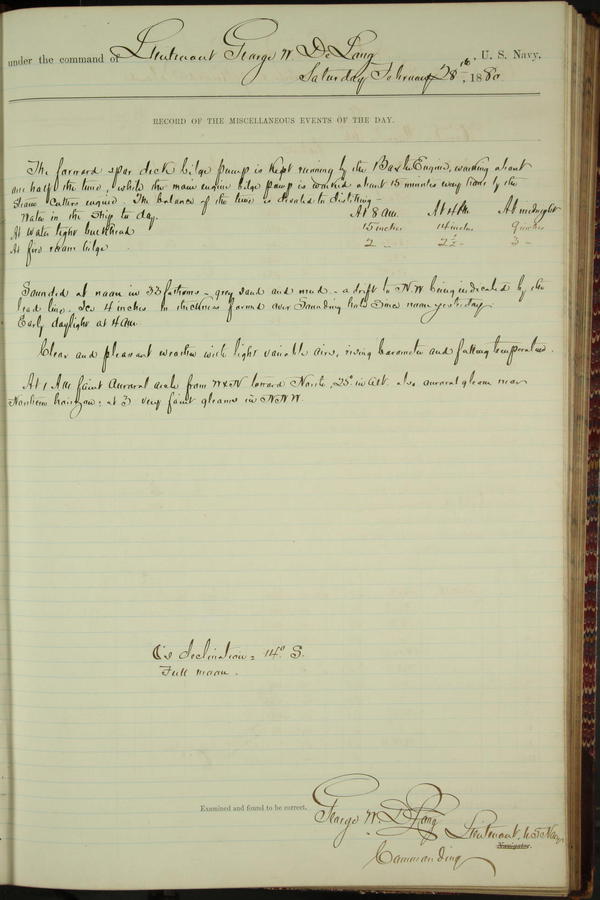 under the command of Lieutenant George W. De Long, U. S. Navy.
Saturday February 28th, 1880
RECORD OF THE MISCELLANEOUS EVENTS OF THE DAY.
The forward spar deck bilge pump is kept running by the Baxter Engine, working about
one half the time, while the main engine bilge pump is worked about 15 minutes every hour by the
Steam Cutters engine. The balance of the time is devoted to distilling -
Water in the ship to day. At 8 AM. At 4 PM. At midnight
At water tight bulkhead 15 inches 14 inches 9 inches
At fire room bilge 2 " 2½ - 3 -
Sounded at noon in 33 fathoms - grey sand and mud - a drift to N.W. being indicated by the
lead line. Ice 4 inches in thickness formed over Sounding hole since noon yesterday.
Early daylight at 4 AM.
Clear and pleasant weather with light variable airs, rising barometer and falling temperature.
At 1 AM faint Auroral arch from toward North, 25° in alt. also auroral gleam near
Northern horizon; at 3 very faint gleams in N.N.W.
☾'s declination = 14° S.
Full moon.
Examined and found to be correct.
George W. De Long Lieutenant, U.S. Navy
Navigator.
Commanding